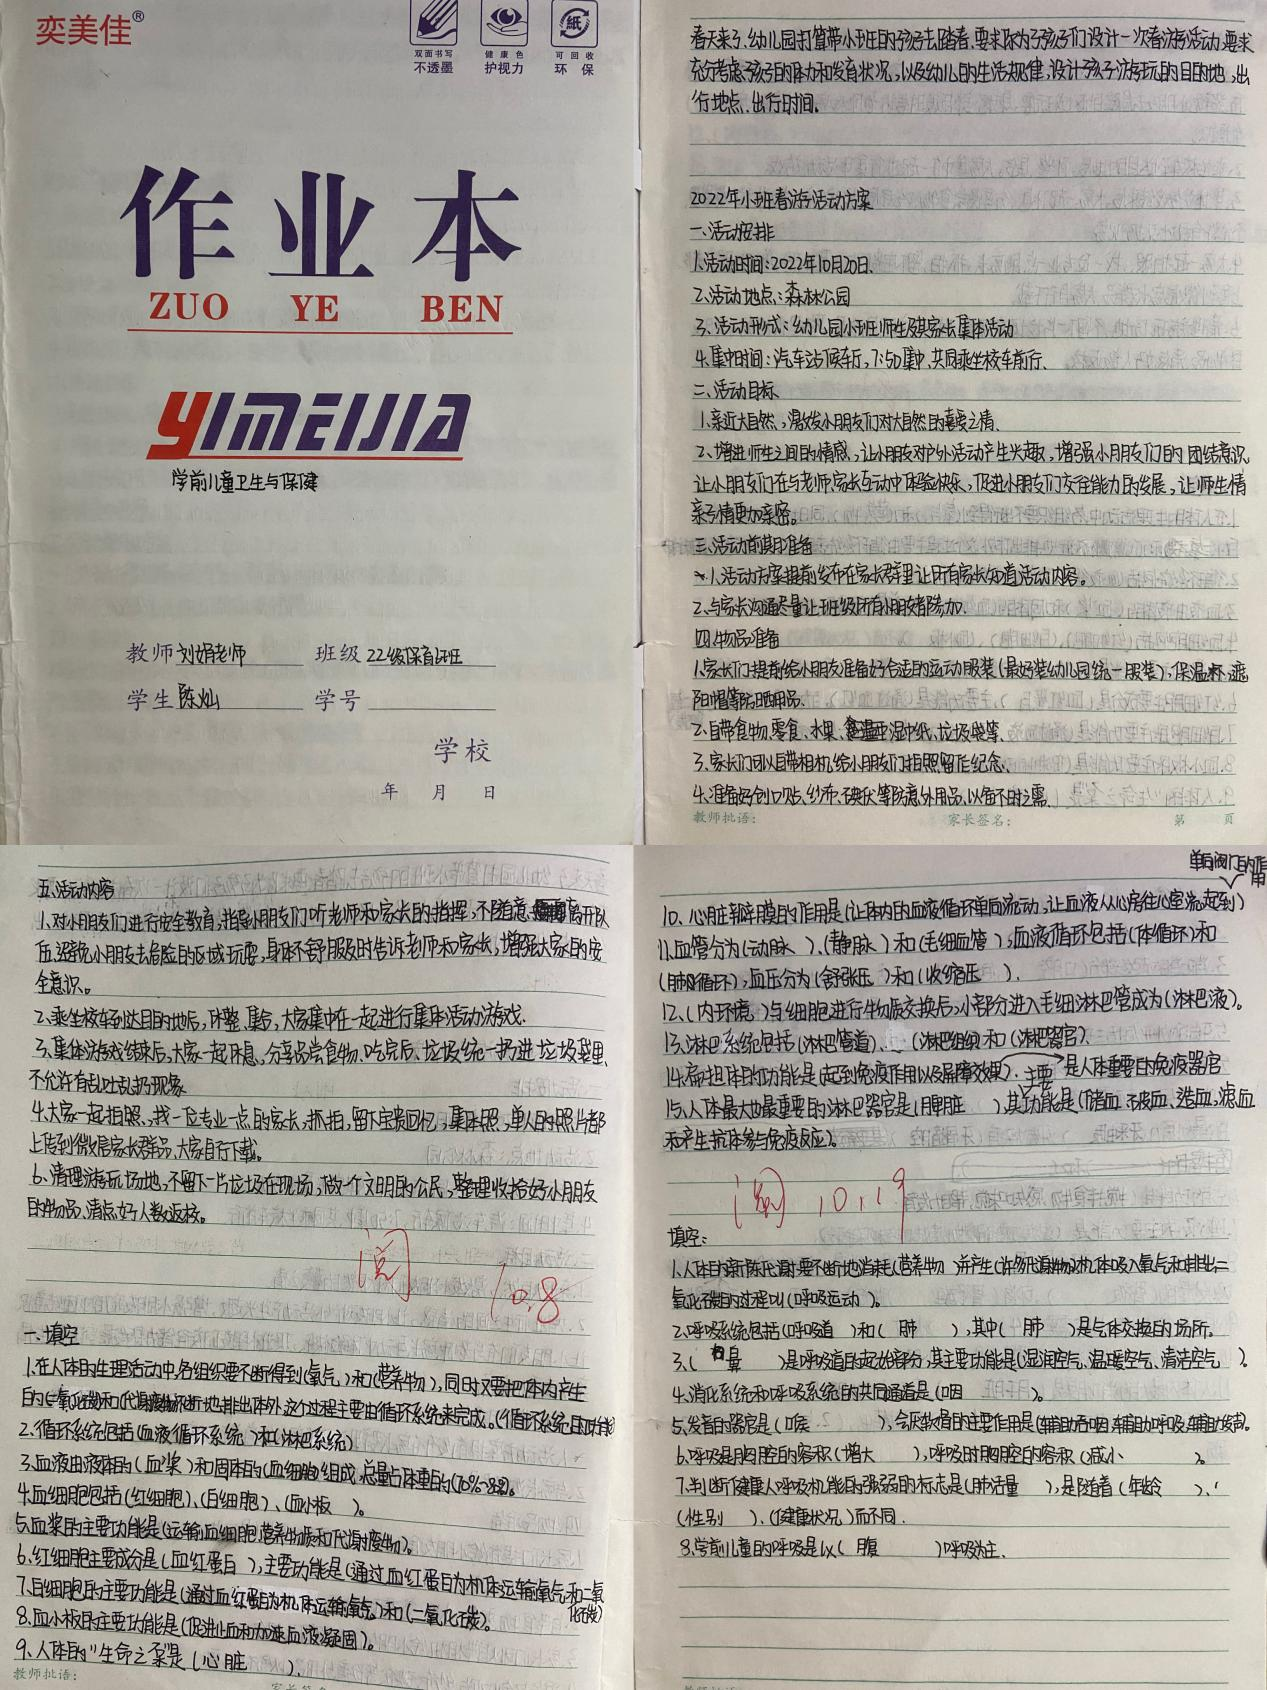 奕美佳®
双面书写
不透墨
健康色
护视力
可回收
环保
紙
作业本
ZUO YE BEN
YIMEIJIA
学前儿童卫生与保健
教师 刘娟老师 班级 22级保育1班
学生 陈灿 学号
学校
年 月 日
春天来了,幼儿园打算带小班的孩子去踏春,要求你为孩子们设计一次春游活动,要求
充分考虑孩子的体力和发育状况,以及幼儿的生活规律,设计孩子游玩的目的地,出
行地点、出行时间。
2022年小班春游活动方案
一、活动安排
1.活动时间:2022年10月20日、
2.活动地点:森林公园
3.活动形式:幼儿园小班师生及其家长集体活动
4.集中时间:汽车站候车厅,7:50集中,共同乘坐校车前行、
二、活动目标
1.亲近大自然、,激发小朋友们对大自然的喜爱之情、
2、增进师生之间的情感,让小朋友对户外活动产生兴趣,增强小朋友们的团结意识
让小朋友们在与老师、家长互动中体验快乐,促进小朋友们交往能力的发展,让师生情
亲子情更加亲密。
三、活动前期准备
1.活动方案提前发布在家长群里让所有家长知道活动内容。
2.与家长沟通尽量让班级所有小朋友都参加.
四、物品准备
1.家长们提前给小朋友准备好合适的运动服装(最好装幼儿园统一服装),保温杯、遮
阳帽等防晒用品.
2、自带食物、零食、水果、湿巾纸、垃圾袋等、
3、家长们可以自带相机给小朋友们拍照留作纪念、
4、准备好创口贴、纱布、碘伏等防意外用品,以备不时之需、
教师批语: 家长签名: 第 页
五、活动内容
1.对小朋友们进行安全教育,指导小朋友们听老师和家长的指挥,不随意离开队
伍,避免小朋友去危险的区域玩耍,身体不舒服及时告诉老师和家长,增强大家的安
全意识。
2.乘坐校车到达目的地后,休整,集合,大家集中在一起进行集体活动游戏.
3.集体游戏结束后,大家一起休息,分享品尝食物,吃完后,垃圾统一扔进垃圾袋里、
不允许有乱吐乱扔现象
4.大家一起拍照、找一位专业一点的家长,抓拍,留下宝贵回忆,集体照、单人的照片都
上传到微信家长群吕,大家自行下载。
6.清理游玩场地,不留下一片垃圾在现场,做一个文明的公民,整理收拾好小朋友
的物品、清点好人数返校。
阅 10.8
一、填空
1.在人体的生理活动中,各组织要不断得到(氧气)和(营养物),同时又要把体内产生
的(二氧化碳)和(代谢废物)不断地排出体外,这个过程主要由循环系统来完成。(循环系统的功能)
2.循环系统包括(血液循环系统)和(淋巴系统)
3.血液由液体的(血浆)和固体的(血细胞)组成,总量占体重的(70%-82)。
4.血细胞包括(红细胞)、(白细胞)、(血小板)。
5.血浆的主要功能是(运输血细胞,营养物质和代谢废物)。
6.红细胞主要成分是(血红蛋白),主要功能是(通过血红蛋白为机体运输氧气和二氧
化碳)
7.白细胞的主要功能是(通过血红蛋白为机体运输氧气)和(二氧化碳)。
8.血小板的主要功能是(促进止血和加速血液凝固)。
9、人体的"生命之泵"是(心脏)。
教师批语:
家长签名:
单向阀门的作
用
10、心脏瓣膜的作用是(让体内的血液循环单向流动,让血液从心房往心室流,起到)
11.血管分为(动脉)、(静脉)和(毛细血管),血液循环包括(体循环)和
(肺循环),血压分为(舒张压)和(收缩压).
12、(内环境)与细胞进行物质交换后,小部分进入毛细淋巴管成为(淋巴液)。
13.淋巴系统包括(淋巴管道)、(淋巴组织)和(淋巴器官).
14.扁桃体的功能是(起到免疫作用以及屏障效果).主要是人体重要的免疫器官
15、人体最大最重要的淋巴器官是(脾脏),其功能是(储血、破血、造血,滤血
和产生抗体参与免疫反应)。
阅 10.19
填空:
1.人体的新陈代谢要不断地消耗(营养物)并产生(许多代谢物),机体吸入氧气和排出二
氧化碳的过程叫(呼吸运动)。
2.呼吸系统包括(呼吸道)和(肺),其中(肺)是气体交换的场所。
3、(鼻)是呼吸道的起始部分,其主要功能是(湿润空气、温暖空气、清洁空气)。
4.消化系统和呼吸系统的共同通道是(咽)。
5、发音的器官是(喉),会厌软骨的主要作用是(辅助吞咽,辅助呼吸,辅助发声).
6.呼吸是胸腔的容积(增大),呼吸时胸腔的容积(减小)。
7.判断健康人呼吸机能的强弱的标志是(肺活量),是随着(年龄)、
(性别)、(健康状况)而不同.
8.学前儿童的呼吸是以(腹)呼吸为主.